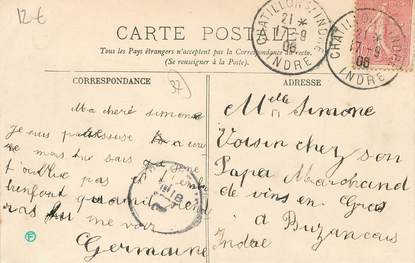 12€
CARTE POSTALE
Tous les Pays étrangers n'acceptent pas la Correspondance au recto.
(Se renseigner à la Poste).
CHATILLON S/ INDRE
21 *
17-9
06
INDRE
CHATILLON S/ INDRE
21 *
17-9
06
INDRE
32
CORRESPONDANCE
Ma chere simone
je suis
mais tu sais
t'oublie pas
tu me voir
Germaine
ADRESSE
Melle Simone
Voisin chez son
Papa Marchand
de vins en Gros
a Buzancais
Indre